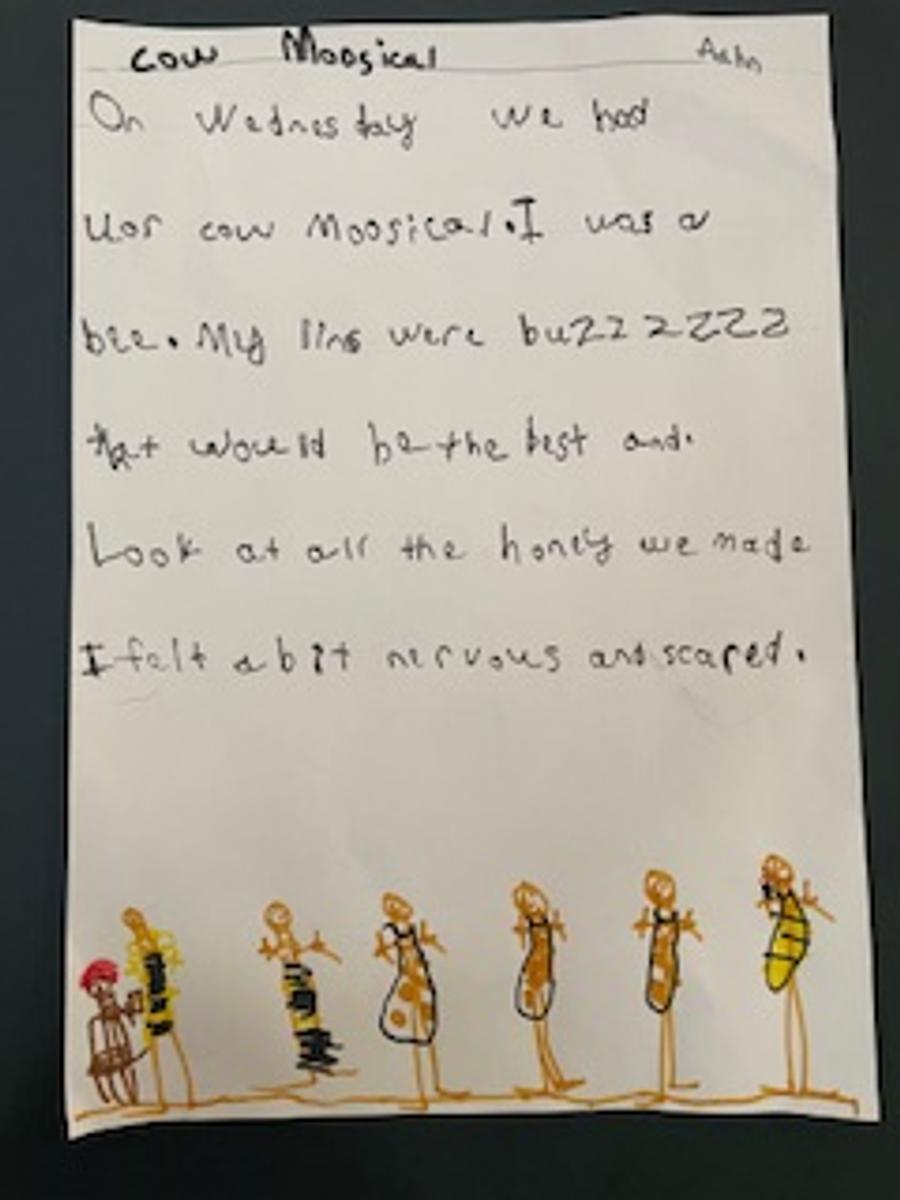 cow Moosical Aahn
On Wednesday we had
uor cow Moosical. I was a
bee. My lins were buzzzzzzz
that would be the best and.
Look at all the honey we made
I felt a bit nervous and scared.